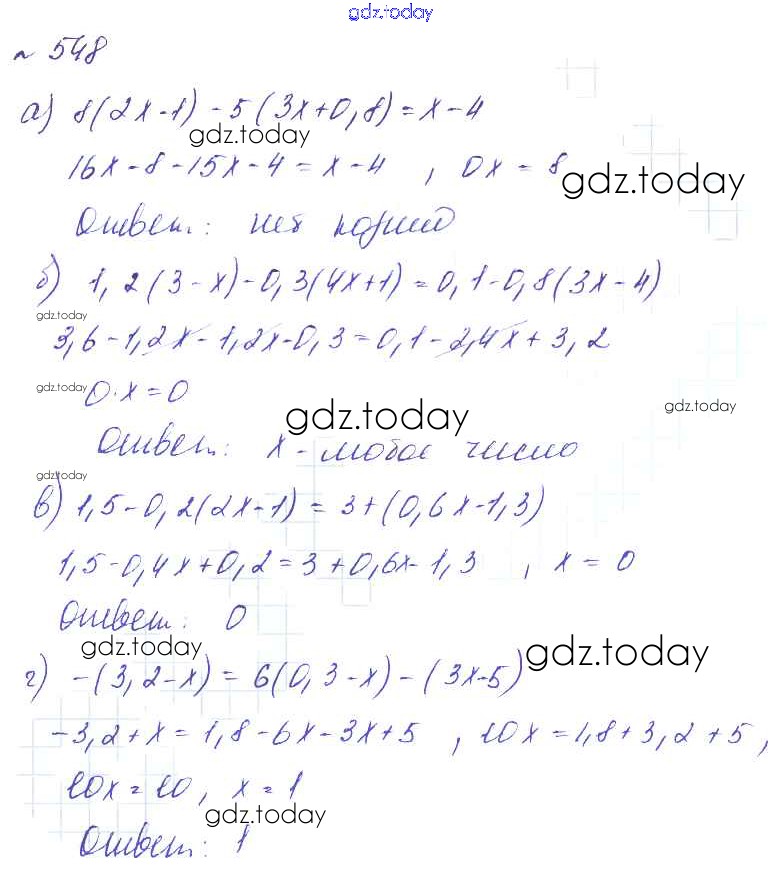 gdz.today
№ 548
а) 8(2x-1) - 5(3x+0,8) = x-4
gdz.today
16x-8-15x-4 = x-4 , 0x = 8
gdz.today
Ответ: нет
б) 1,2(3-x)-0,3(4x+1)=0,1-0,8(3x-4)
gdz.today
3,6-1,2x-1,2x-0,3=0,1-2,4x+3,2
gdz.today
0·x=0
gdz.today
gdz.today
Ответ: x - любое число
gdz.today
в) 1,5-0,2(2x-1) = 3+(0,6x-1,3)
1,5-0,4x+0,2=3+0,6x-1,3 , x = 0
Ответ: 0
gdz.today
gdz.today
г) -(3,2-x) = 6(0,3-x)-(3x-5)
-3,2+x=1,8-6x-3x+5 , 10x=1,8+3,2+5,
10x=10, x=1
gdz.today
Ответ: 1